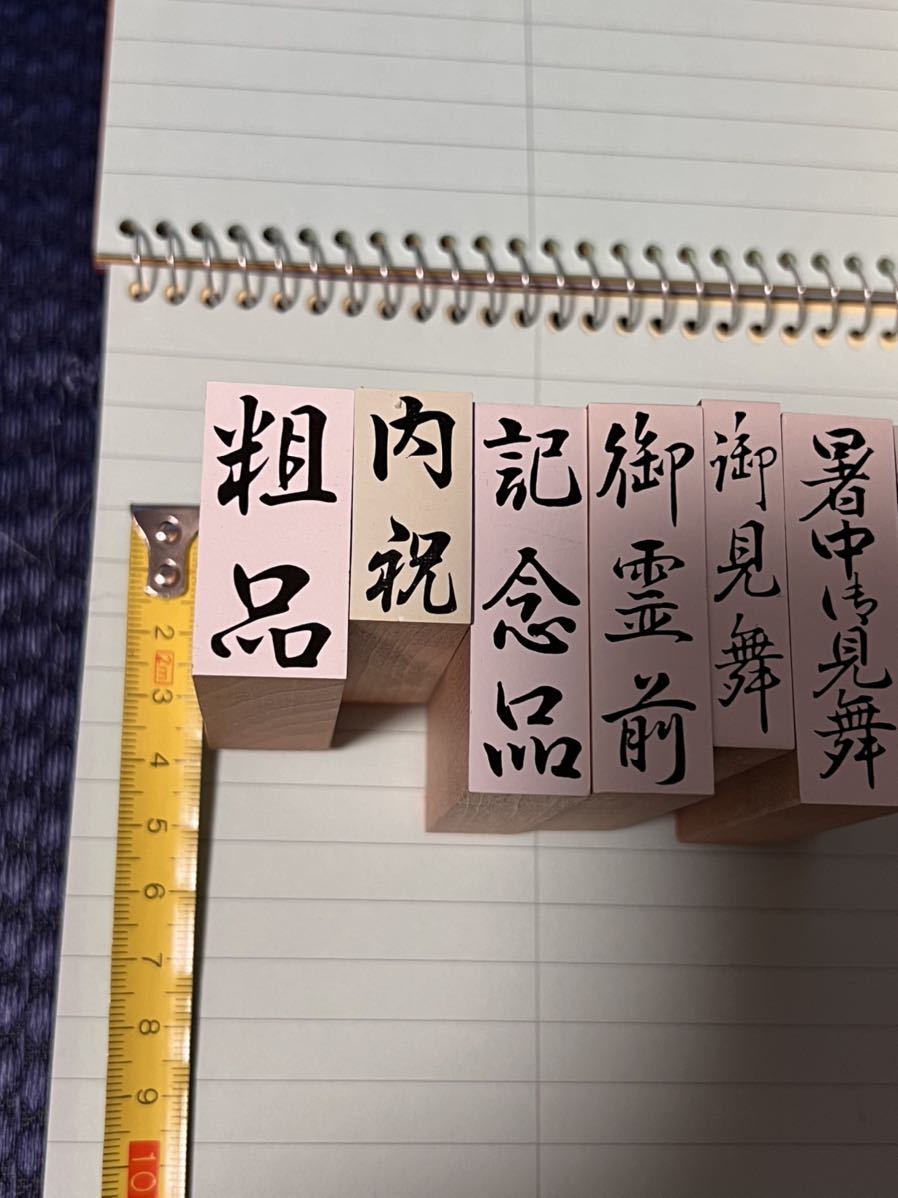 粗品
内祝
記念品
御霊前
御見舞
暑中御見舞
2
2m
3
4
5
6
7
8
9
10